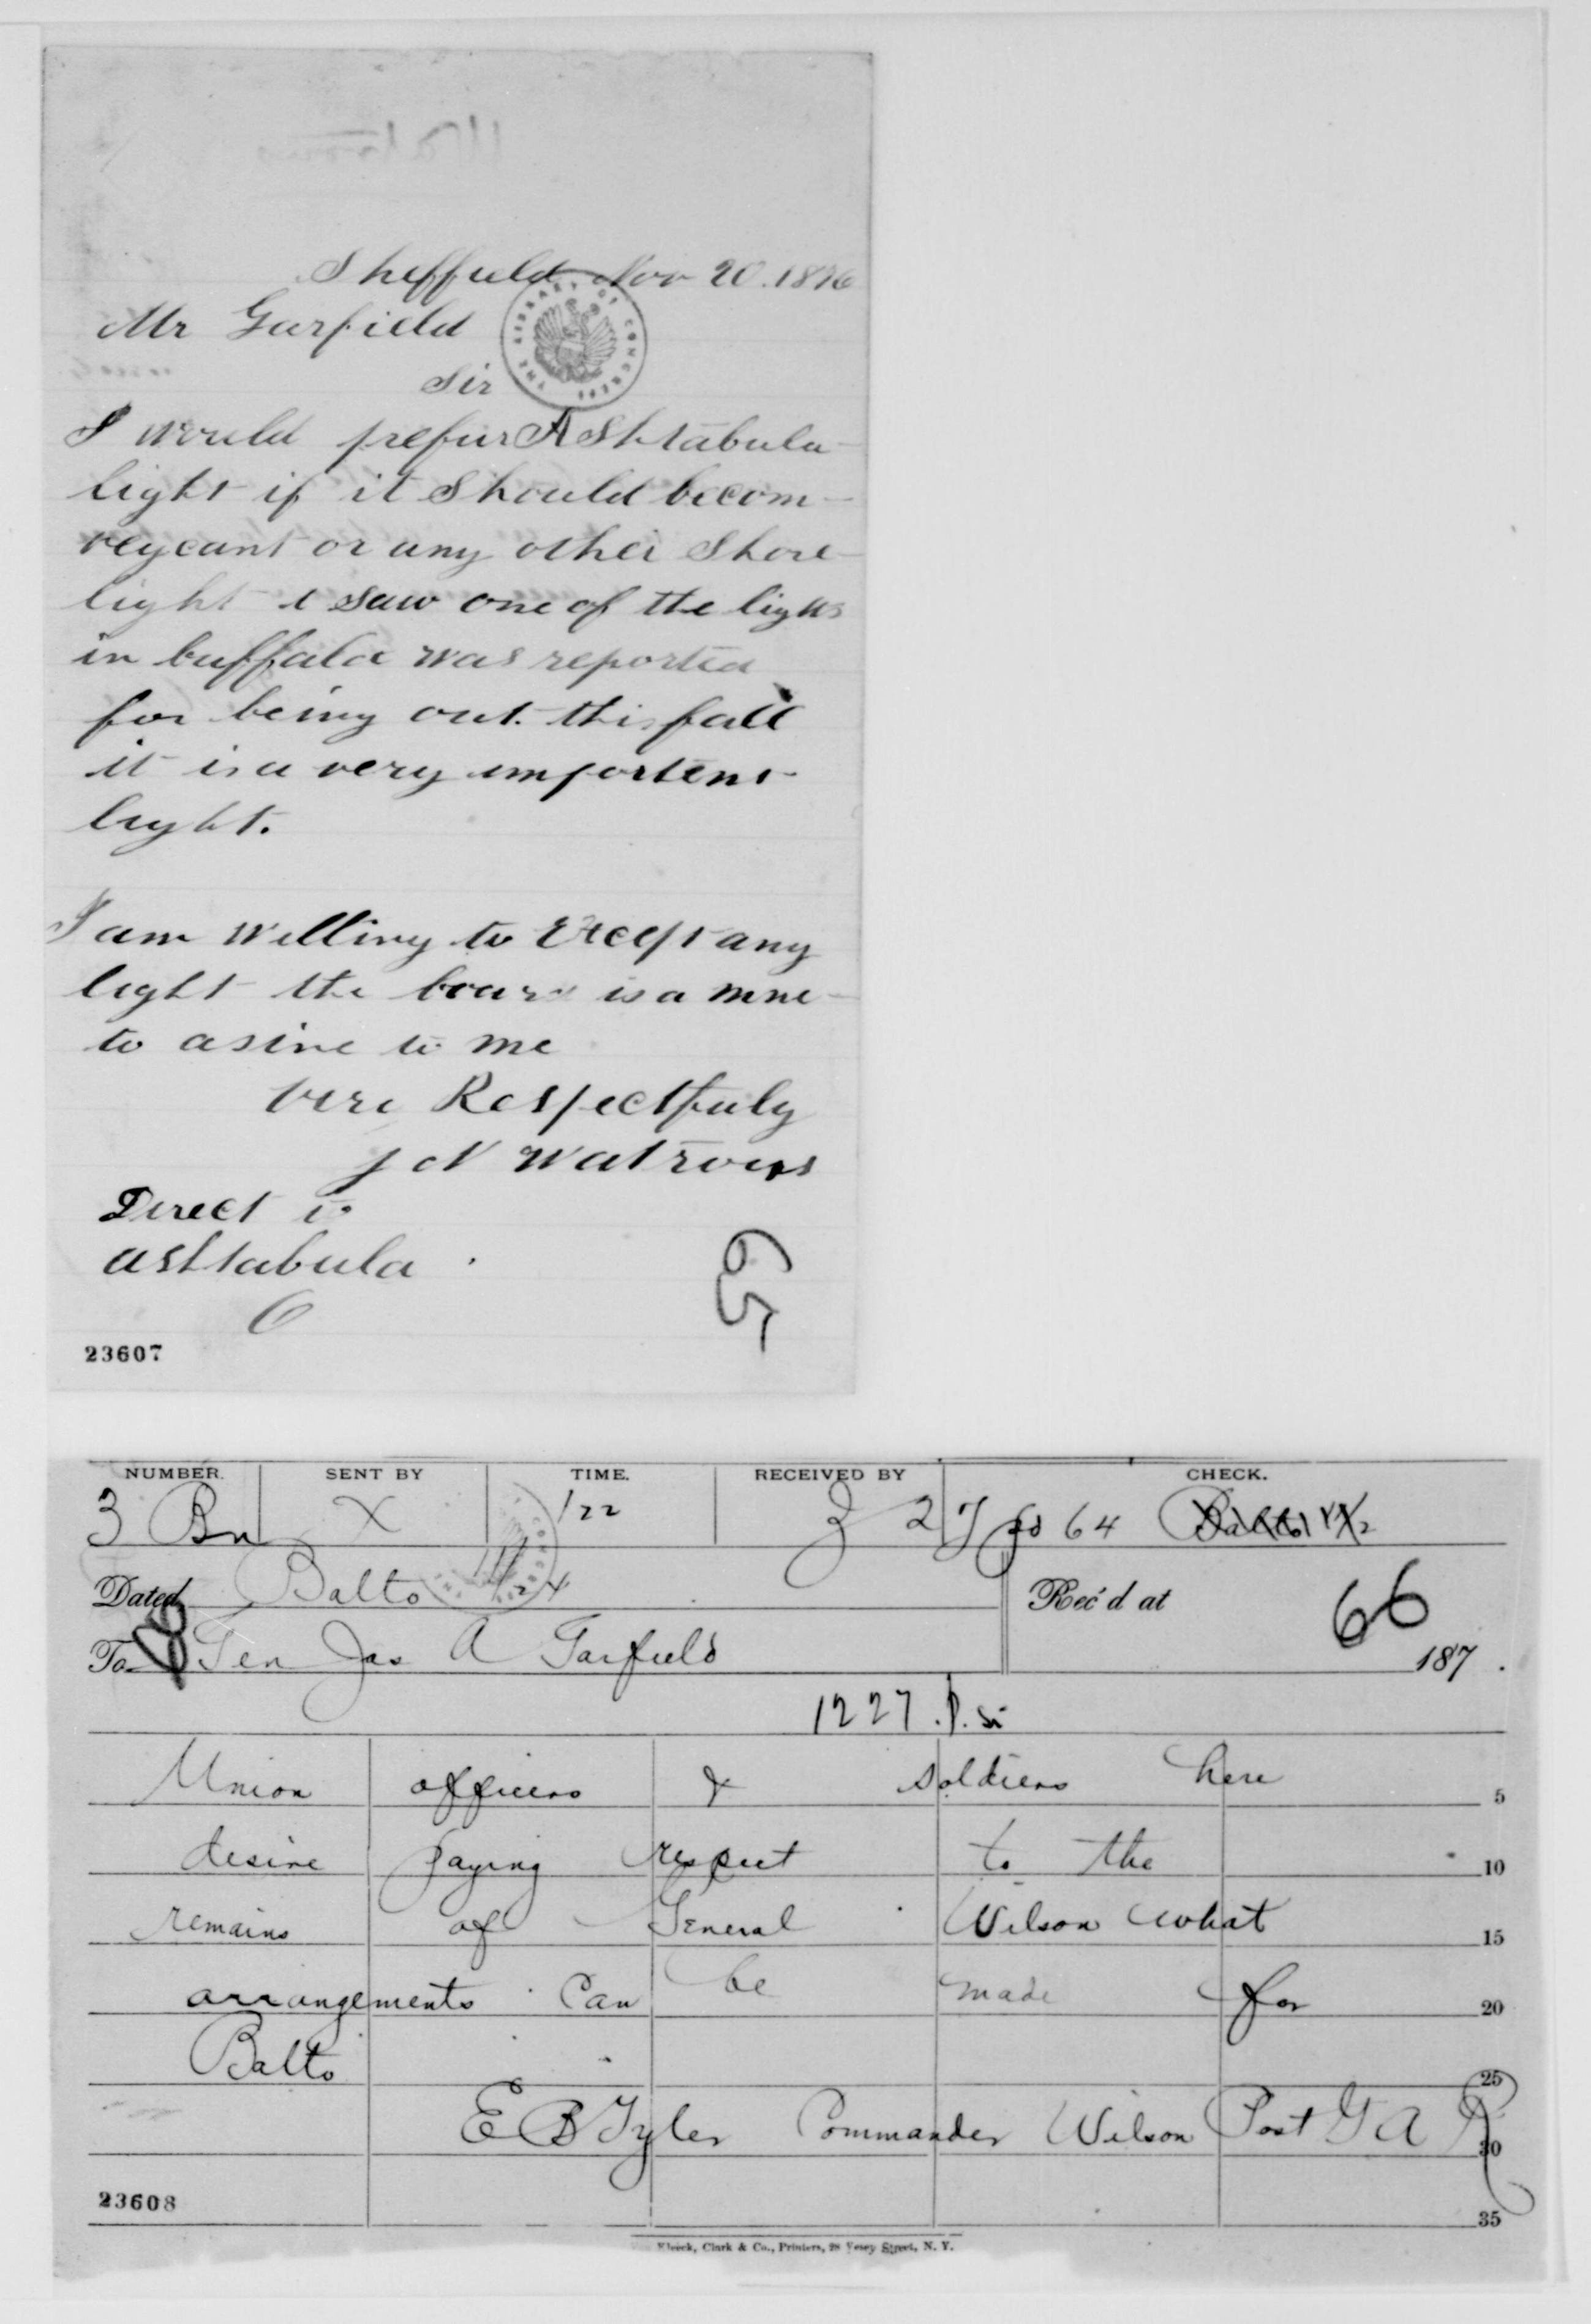 Sheffield Nov 20. 1876
Mr Garfield
Sir
THE LIBRARY OF CONGRESS
I would prefur AShtabula
light if it Should becom
veycant or any other Shore
light i saw one of the lights
in buffalo was reported
for being out this fall
it is a very importent
light.
I am willing to Except any
light the board is a mine
to asine to me
vere Respectfuly
J N Watrous
Direct to
ashtabula
O
65
23607
NUMBER. SENT BY TIME. RECEIVED BY CHECK.
3 Bn X 122 27 64
Dated Balto 11/24 Rec'd at 66
To Gen Jas A Garfield 187 .
1227
Union officers & soldiers here 5
desire paying respect to the 10
remains of General Wilson what 15
arrangements can be made for 20
Balto 25
E B Tyler Commander Wilson Post G A R 30
23608 35
Kleeck, Clark & Co., Printers, 28 Vesey Street, N. Y.